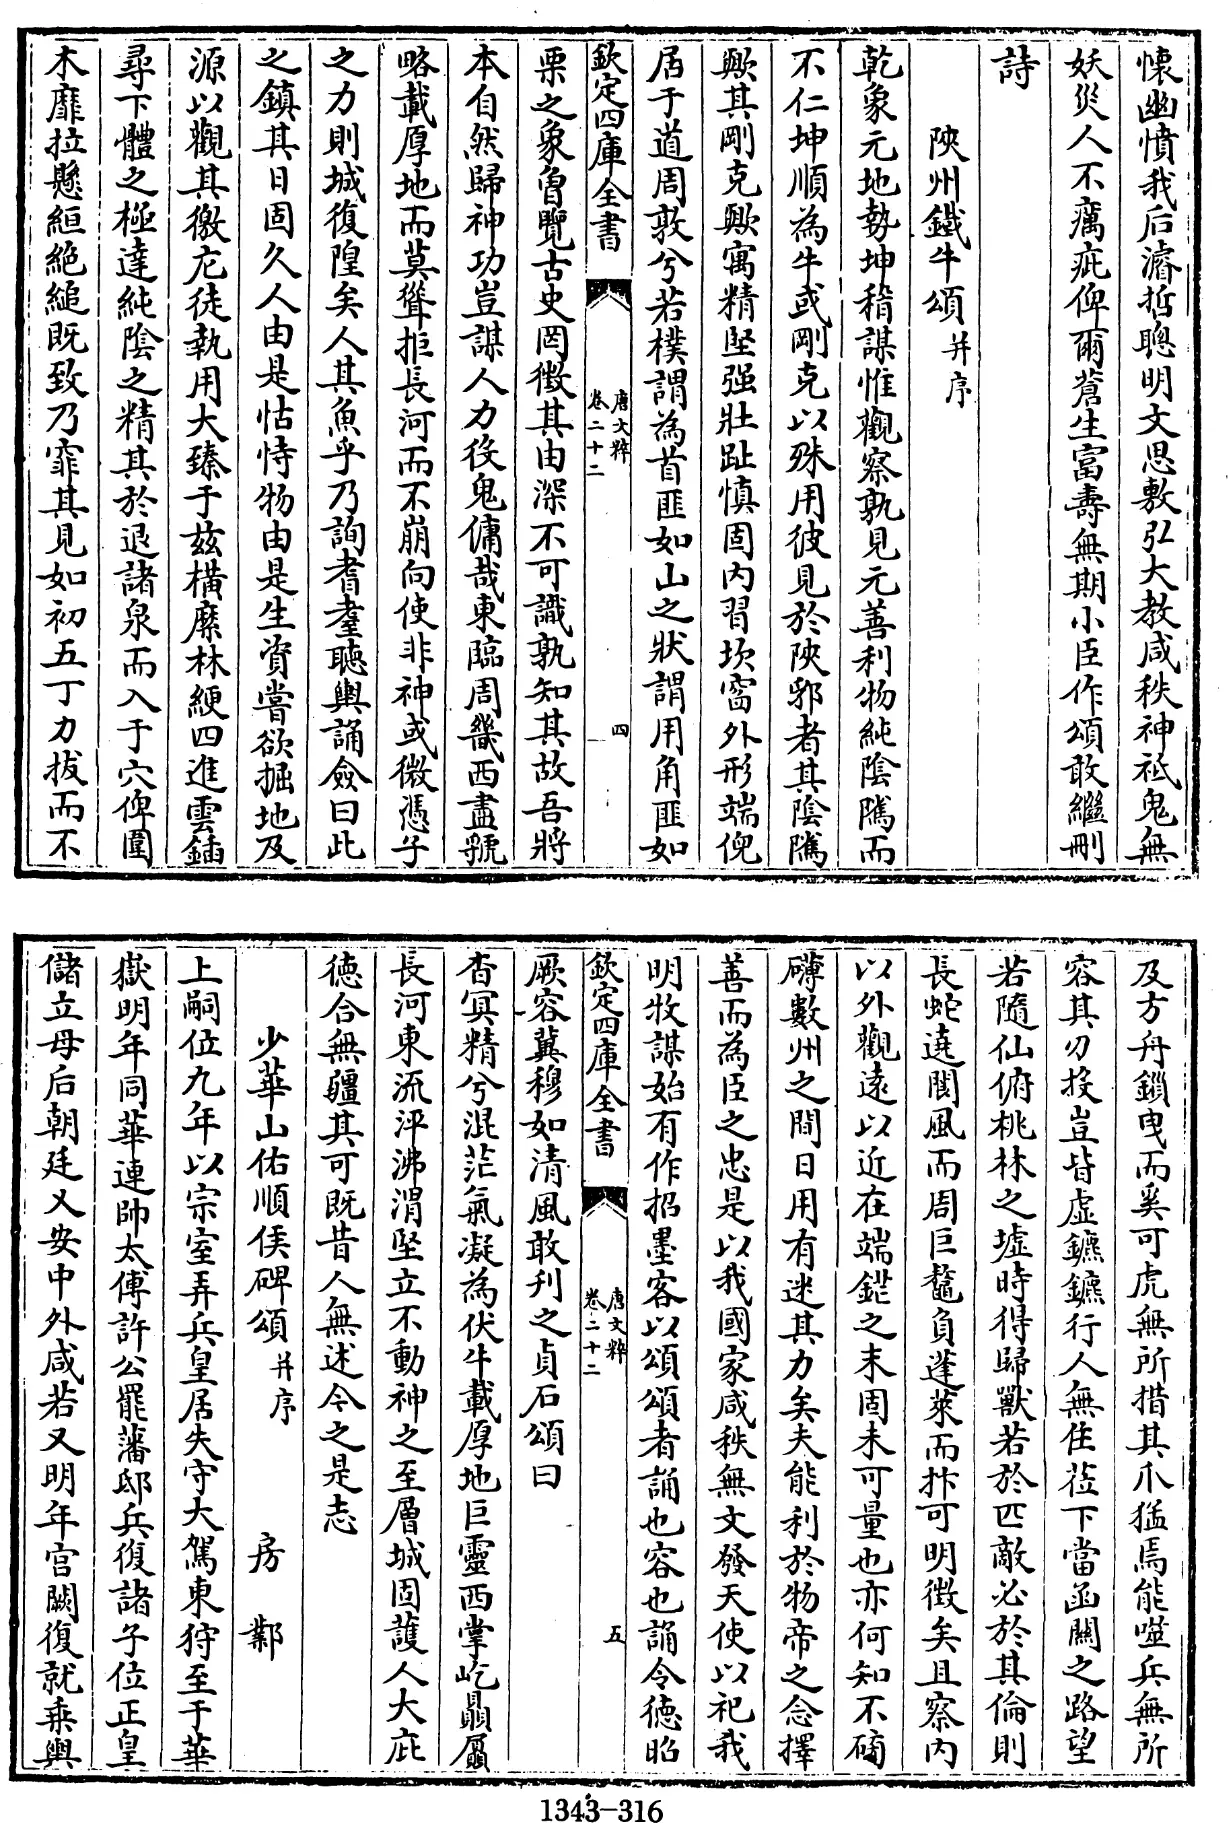 懷幽憤我后濬哲聰明文思敷弘大教咸秩神祗鬼無
妖災人不癘疵俾爾蒼生富壽無期小臣作頌敢繼刪
詩
陜州鐵牛頌并序
乾象元地勢坤稽謀惟觀察孰見元善利物純陰隲而
不仁坤順為牛或剛克以殊用彼見於陜郛者其陰隲
歟其剛克歟寓精堅强壯趾慎固内習坎窞外形端倪
居于道周敦兮若樸謂為首匪如山之狀謂用角匪如
欽定四庫全書
唐文粹
卷二十二
四
栗之象曾覽古史罔徴其由深不可識孰知其故吾將
本自然歸神功豈謀人力役鬼傭哉東臨周畿西盡虢
略載厚地而莫聳拒長河而不崩向使非神或微憑子
之力則城復隍矣人其魚乎乃詢耆耋聽輿誦僉曰此
之鎮其日固久人由是怙恃物由是生資嘗欲掘地及
源以觀其徼厷徒執用大臻于兹横縻林綆四進雲鍤
尋下體之極達純陰之精其於退諸泉而入于穴俾圍
木靡拉懸縆絶縋既致乃窂其見如初五丁力拔而不
及方舟鎖曳而奚可虎無所措其爪猛焉能噬兵無所
容其刃投豈皆虛鑣鑣行人無住莅下當函關之路望
若隨仙俯桃林之墟時得歸獸若於匹敵必於其倫則
長蛇遶閿風而周巨鼇負蓬萊而抃可明徴矣且察内
以外觀遠以近在端鋩之末固未可量也亦何知不礴
礴數州之間日用有迷其力矣夫能利於物帝之念擇
善而為臣之忠是以我國家咸秩無文發天使以祀我
明牧謀始有作招墨客以頌頌者誦也容也誦令徳昭
欽定四庫全書
唐文粹
卷二十二
五
厥容冀穆如清風敢刋之貞石頌曰
杳冥精兮混茫氣凝為伏牛載厚地巨靈西掌屹贔屭
長河東流泙沸渭堅立不動神之至層城固護人大庇
徳合無疆其可既昔人無述今之是志
少華山佑順侯碑頌并序 房鄴
上嗣位九年以宗室弄兵皇居失守大駕東狩至于華
嶽明年同華連帥太傅許公罷藩邸兵復諸子位正皇
儲立母后朝廷乂安中外咸若又明年宫闕復就乗輿
1343-316